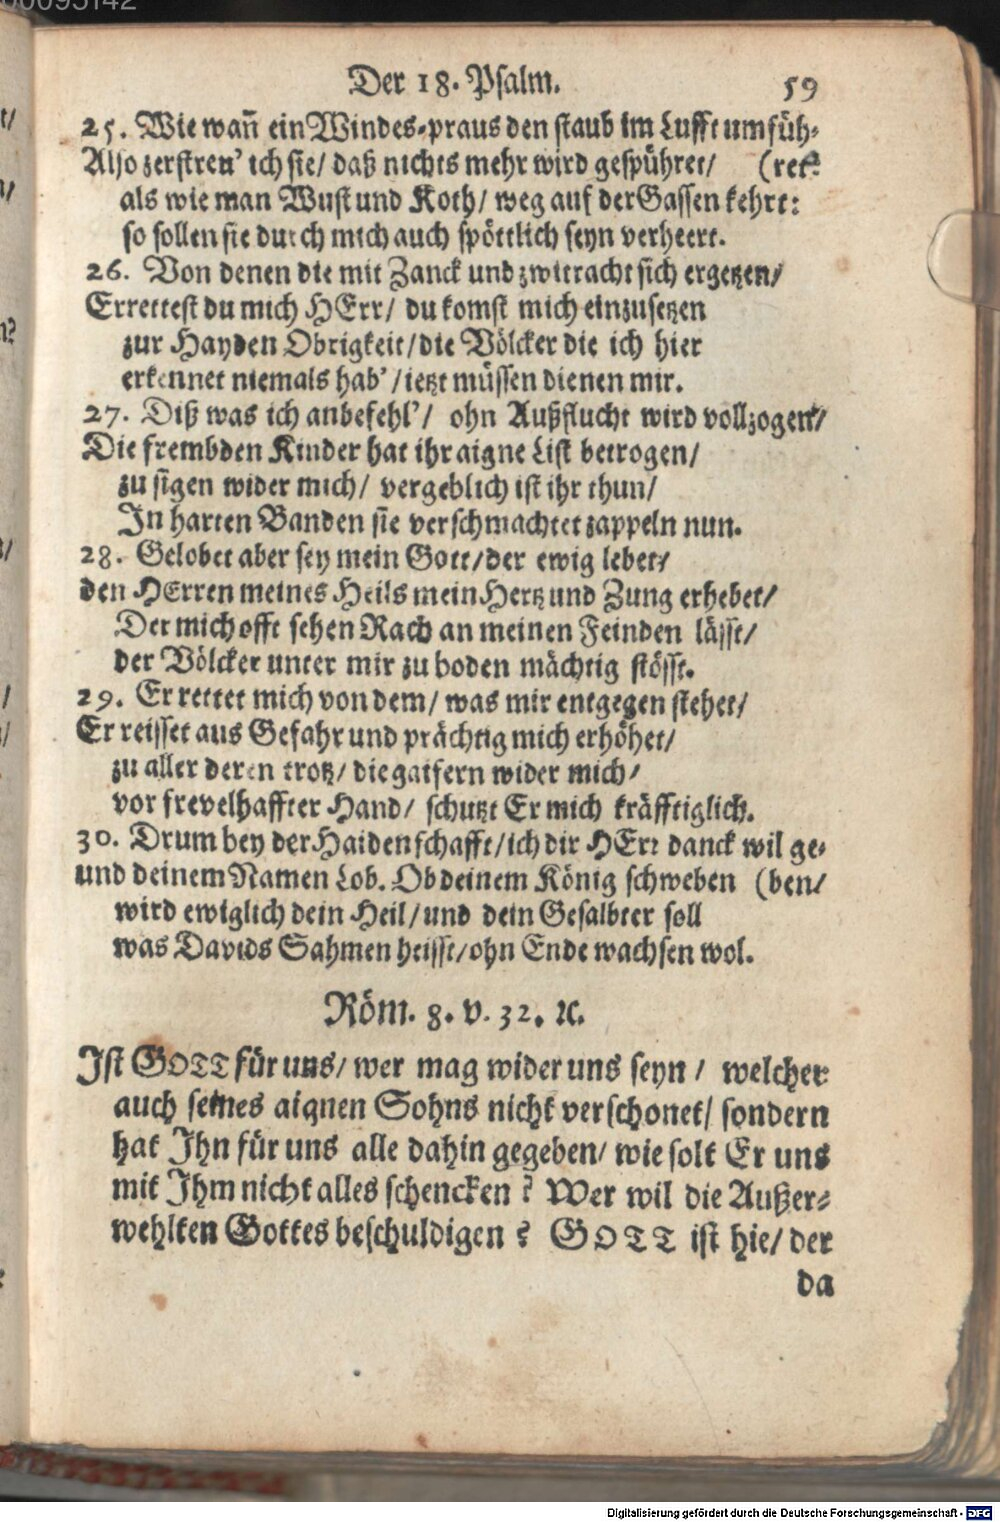 Der 18. Psalm. 59
25. Wie wañ ein Windes-praus den staub im Lufft umfüh-
Also zerstreu' ich sie/ daß nichts mehr wird gespühret/ (ret:
als wie man Wust und Koth/ weg auf der Gassen kehrt:
so sollen sie durch mich auch spöttlich seyn verheert.
26. Von denen die mit Zanck und zwitracht sich ergetzen/
Errettest du mich HErr/ du komst mich einzusetzen
zur Hayden Obrigkeit/die Völcker die ich hier
erkennet niemals hab'/ietzt müssen dienen mir.
27. Diß was ich anbefehl'/ ohn Außflucht wird vollzogen/
Die frembden Kinder hat ihr aigne List betrogen/
zu sigen wider mich/ vergeblich ist ihr thun/
In harten Banden sie verschmachtet zappeln nun.
28. Gelobet aber sey mein Gott/der ewig lebet/
den HErren meines Heils mein Hertz und Zung erhebet/
Der mich offt sehen Rach an meinen Feinden lässt/
der Völcker unter mir zu boden mächtig stösst.
29. Er rettet mich von dem/ was mir entgegen stehet/
Er reisset aus Gefahr und prächtig mich erhöhet/
zu aller deren trotz/ die gaifern wider mich/
vor frevelhaffter Hand/ schutzt Er mich kräfftiglich.
30. Drum bey der Haidenschafft/ich dir HErr danck wil ge-
und deinem Namen Lob. Ob deinem König schweben (ben/
wird ewiglich dein Heil/und dein Gesalbter soll
was Davids Sahmen heisst/ohn Ende wachsen wol.
Röm. 8. v. 32. ꝛc.
Ist GOTT für uns/ wer mag wider uns seyn/ welcher
auch seines aignen Sohns nicht verschonet/ sondern
hat Ihn für uns alle dahin gegeben/ wie solt Er uns
mit Ihm nicht alles schencken? Wer wil die Außer-
wehlten Gottes beschuldigen? GOTT ist hie/ der
da
Digitalisierung gefördert durch die Deutsche Forschungsgemeinschaft - DFG